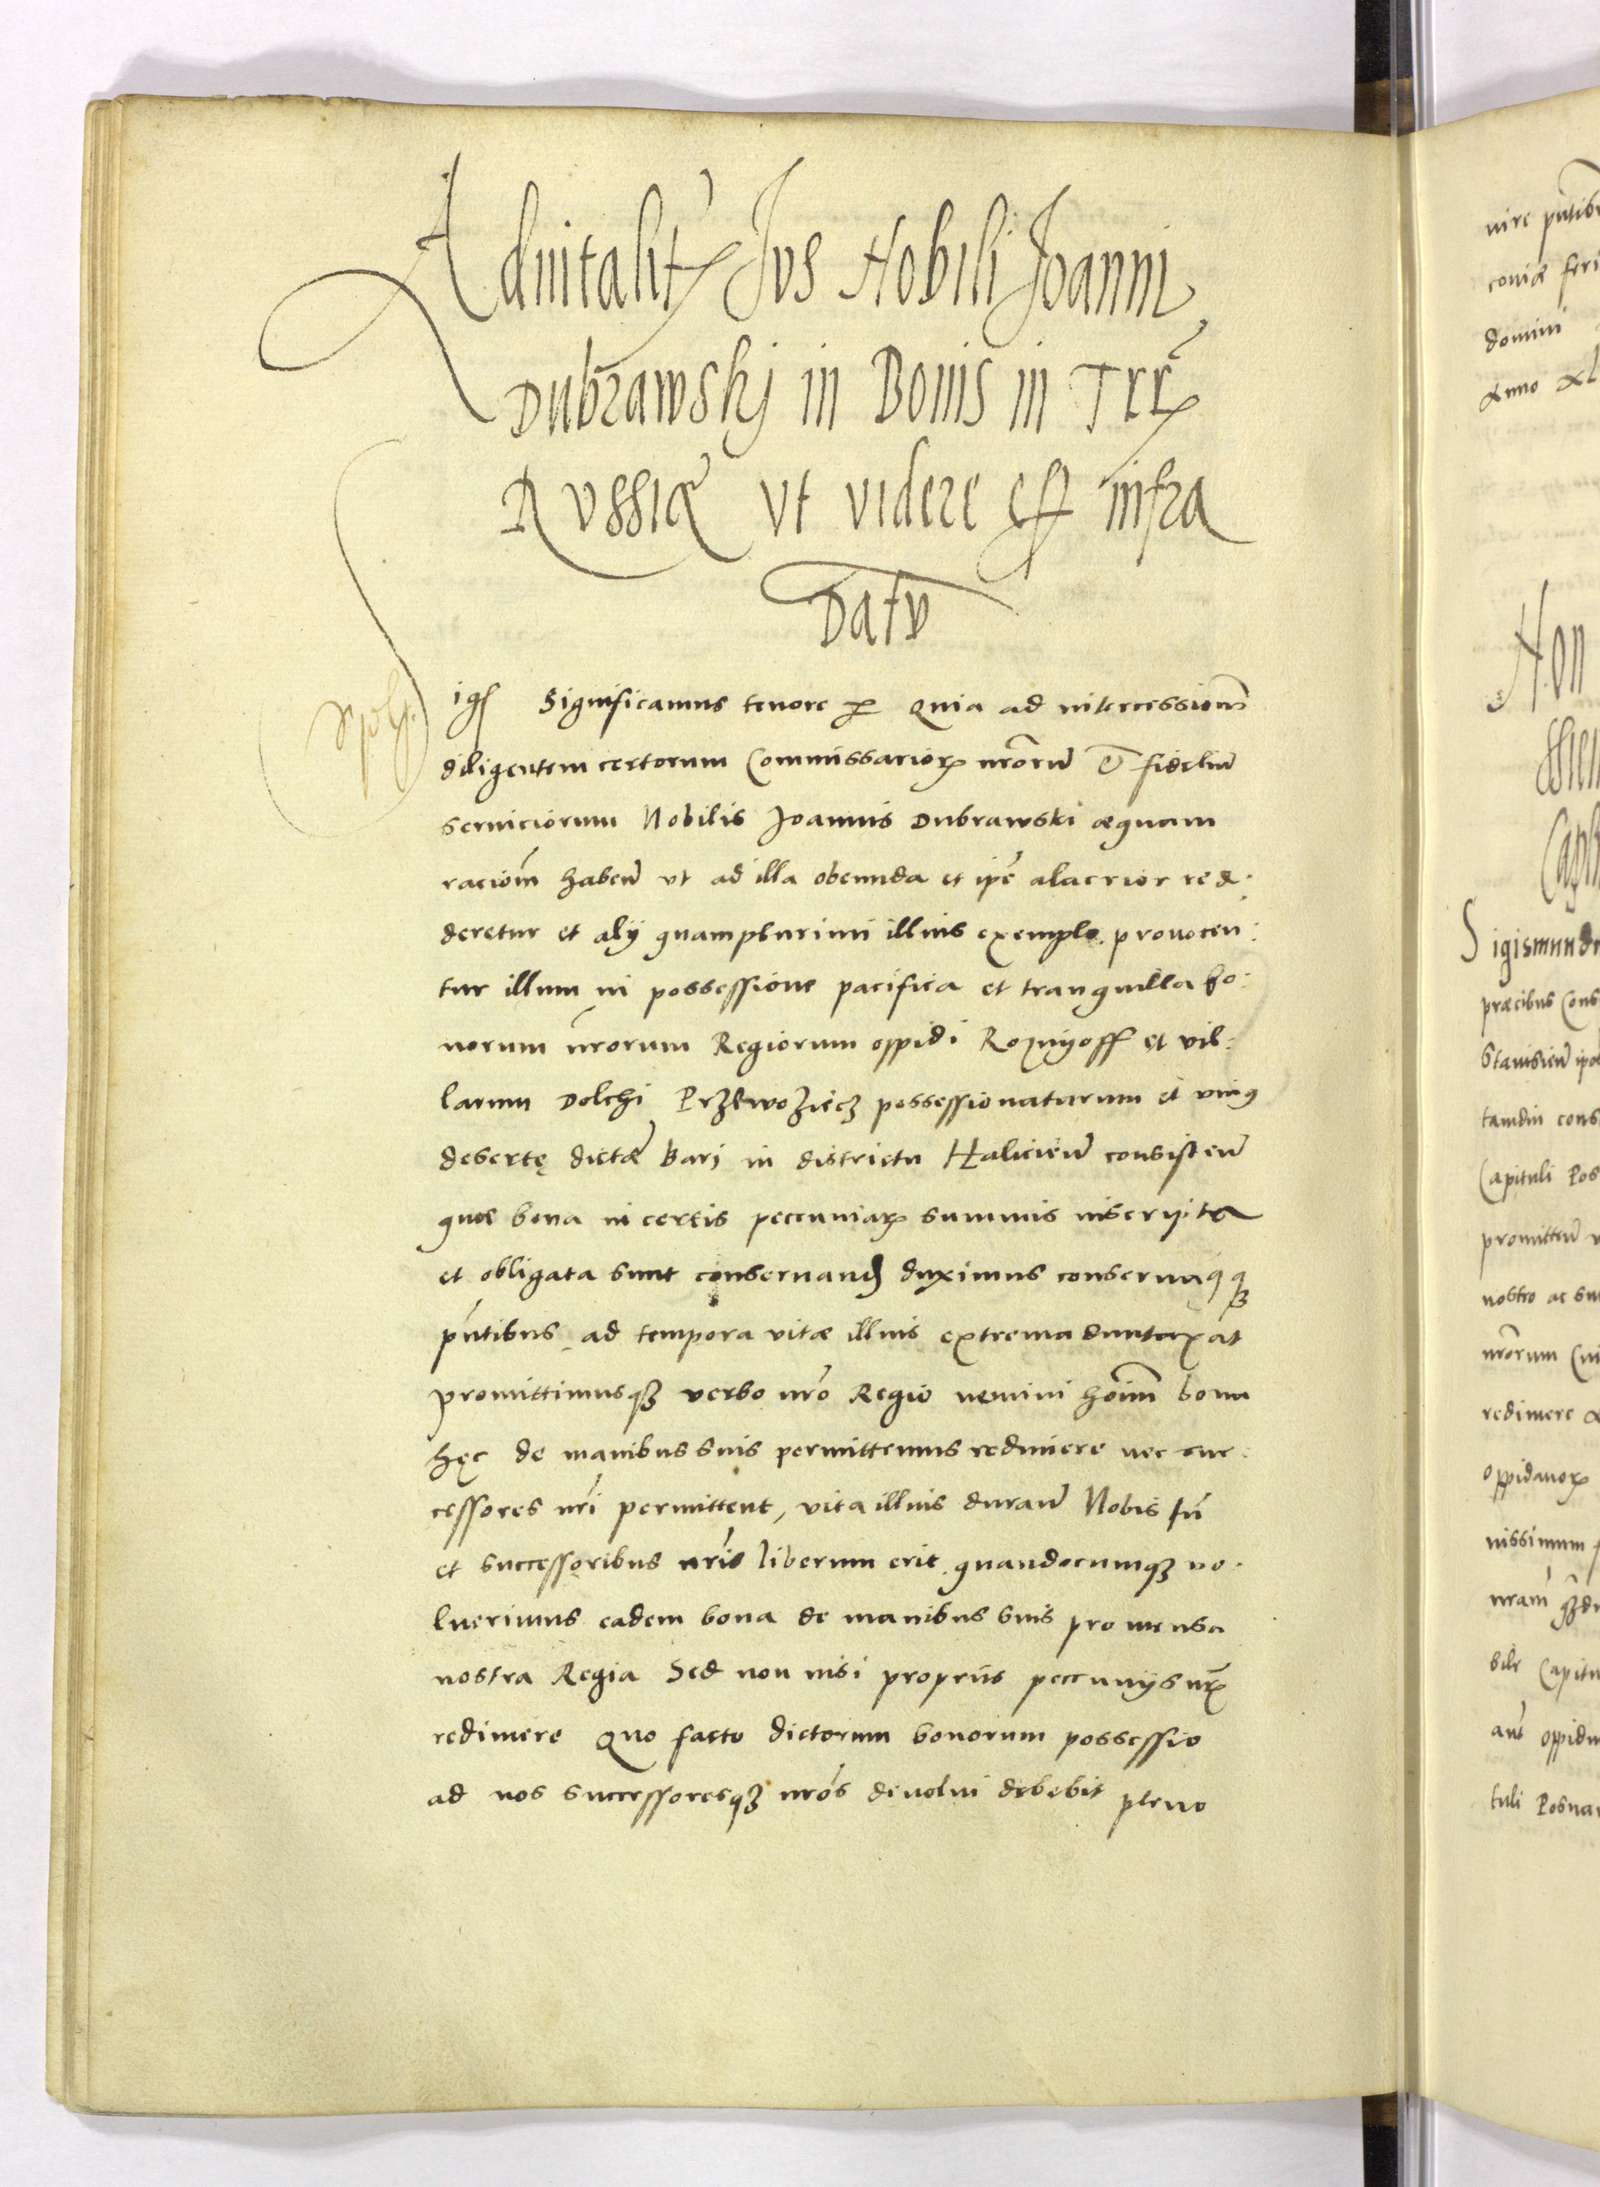 Aduitalit Jus Nobili Joanni
Dubrawskj in Bonis in Terr
Russiæ ut videre est infra
Datu
Sigs Significamus tenore p Quia ad intercessionē
diligentem certorum Commissarior nrorū & fidelium
seruiciorum Nobilis Joannis Dubrawski æquam
racionē haben̄ ut ad illa obeunda et ipe alacrior red-
deretur et alij quamplurimi illius exemplo prouocen:
tur illum in possessione pacifica et tranquilla bo:
norum nrorum Regiorum oppidi Roznijoff et vil:
larum Dolchi Przewoziecz possessionaturum et unius
desertę dictæ Barj in districtu Halicien̄ consisten̄
quæ bona in certis peccuniar summis inscripta
et obligata sunt conseruand duximus conseruaqq
pn̄tibus ad tempora vitæ illius extrema duntaxat
promittimusq verbo nro Regio nemini hoim̄ bona
hęc de manibus suis permittemus redimere nec suc:
cessores nri permittent, vita illius duran̄ Nobis tn̄
et successoribus nris liberum erit quandocumq vo-
luerimus eadem bona de manibus suis pro mensa
nostra Regia Sed non nisi propriis peccunijs nr
redimere Quo facto dictorum bonorum possessio
ad nos successoresq nros deuolui debebit pleno
uire pn̄tibu
couiæ feri
domini
Anno xl
Non
Capi
Sigismundu
præcibus Cons
tandiu cons
Capituli Pos
promitten̄
nostro ac su
nrorum
redimere
oppidanor
nissimum
nram
bile Capitu
oppidu
tuli Posna